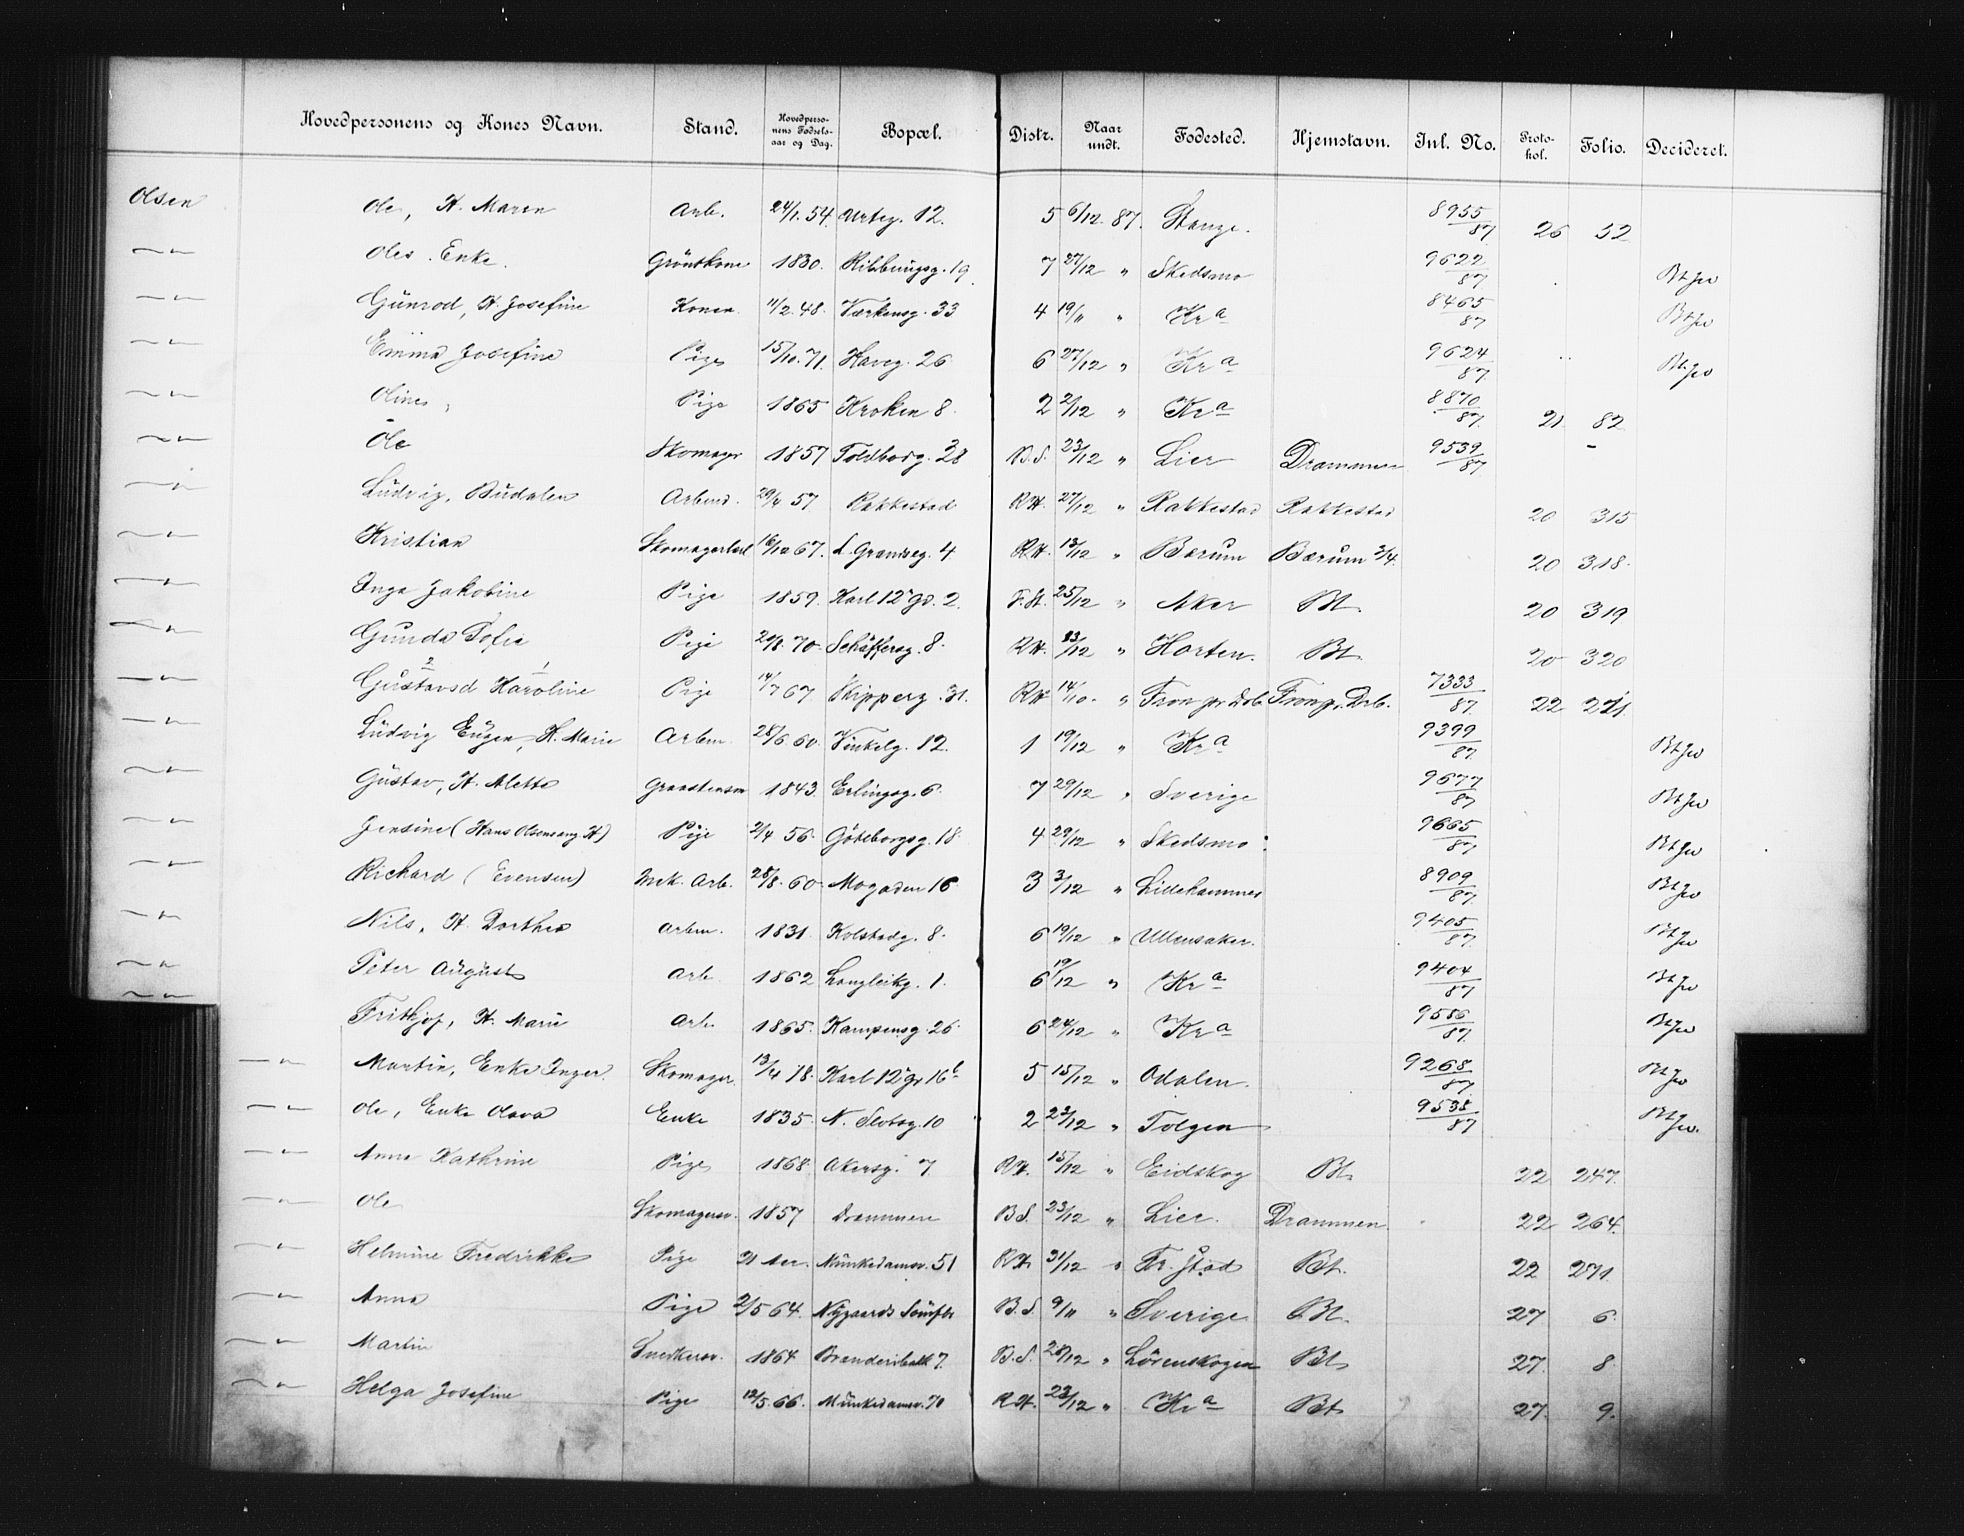 Hovedpersonens og Kones Navn. Stand. Hovedpersonens Fødselsaar og Dag. Bopæl. Distr. Naar undt. Fødested. Hjemstavn. Jnl. No. Protokol. Folio. Decideret.
Olsen Ole, H. Maren Arb. 24/1. 54. Urteg. 12. 5 6/12 87. Stange. 8955/87 26 52
—"— Oles Enke. Gröntkone 1830. Ribbungsg. 19. 7 27/12 " Skedsmo 9622/87
—"— Gunrod, H. Josefine Konen 11/2. 48. Værkensg. 33 4 19/11 " Kra 8465/87
—"— Emma Josefine Pige 15/10. 71. Haveg. 26 6 27/12 " Kra 9624/87
—"— Oline, Pige 1865 Kroken 8. 2 2/12 " Kra 8870/87. 21 82
—"— Ole Skomager 1857 Toldbodg. 28 B.S. 23/12 " Lier Drammen 9539/87 –
—"— Ludvig, Budalen Arbmd. 29/4 57 Rakkestad RH. 27/12 " Rakkestad Rakkestad 20 315
—"— Kristian Skomagerlærl 16/10 67. L. Grændseg. 4 RH. 13/12 " Bærum Bærum 3/4. 20 318.
—"— Inga Jakobine Pige 1859. Karl 12s gd. 2. F.H. 25/12 " Aker Bt. 20 319
—"— Gunda Sofie Pige 20/8. 70. Schäffersg. 8. RH. 13/12 " Horten. Bt. 20 320
—"— Gustavsd Karoline Pige 14/7 67 Skipperg. 31. RH 14/10. " Fron pr Drb. Fron p. Drb. 7333/87. 22 211.
—"— Ludvig Eugen, H. Marie Arbm. 28/6. 60. Vinkelg. 12. 1 19/12 " Kra 9399/87.
—"— Gustav, H. Alette Graastensm 1843. Erlingsg. 6. 7 29/12 " Sverige 9677/87
—"— Jensine (Hans Olsenseng H) Pige 2/4 56. Göteborgsg. 18. 4 29/12 " Skedsmo. 9665/87
—"— Richard (Evensen) Mek. Arb. 28/8. 60. Mogaden 16 3 3/12 " Lillehammer 8909/87.
—"— Nils, H. Dorthea Arbm. 1831. Kolstadg. 8. 6 19/12 " Ullensaker. 9405/87.
—"— Peter August Arb. 1862 Langleikg. 1. 6 19/12 " Kra 9404/87
—"— Frithjof, H. Marie Arb. 1865. Kampensg. 26. 6 24/12 " Kra 9586/87.
—"— Martin, Enke Inger. Skomager. 13/4 18. Karl 12s gd 16b 5 15/12 " Odalen. 9268/87
—"— Ole, Enke Olava Enke 1835. N. Slotsg. 10 2 23/12 " Tolgen 9538/87
—"— Anna Kathrine Pige 1868. Akersg. 7 RH. 15/12 " Eidskog Bt. 22 247.
—"— Ole Skomagersv. 1857 Drammen B.S. 23/12 " Lier. Drammen. 22 264.
—"— Helmine Fredrikke Pige 21 Aar. Munkedamsv. 51 RH 31/12 " Fr. stad Bt. 22 271.
—"— Anna Pige 2/5 64. Nygaards B.S. 9/11 " Sverige Bt. 27 6.
—"— Martin Snedkersv. 1864 7. B.S. 28/12 " Lörenskogen Bt. 27. 8.
—"— Helga Josefine Pige 12/5. 66. Munkedamsv. 70 RH. 23/12 " Kra Bt. 27. 9.